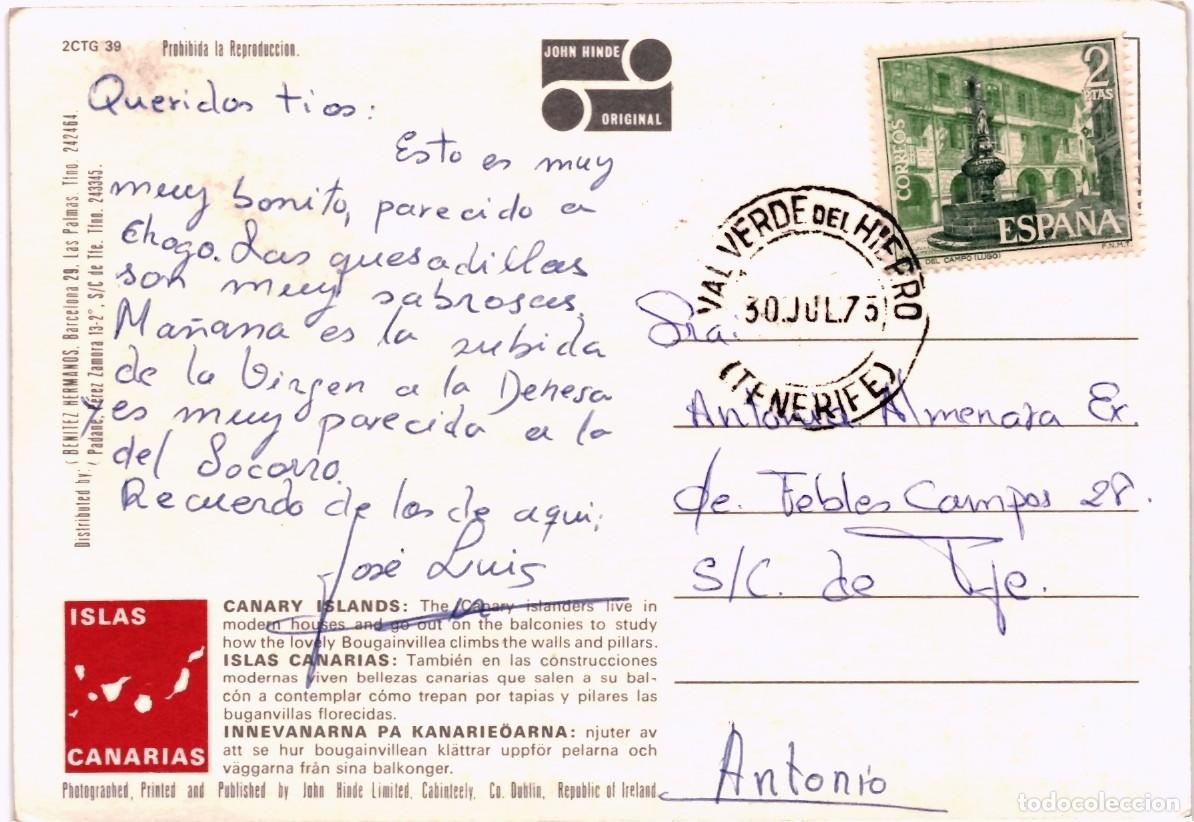 2CTG 39 Prohibida la Reproduccion.
JOHN HINDE
ORIGINAL
Queridos tios:
Esto es muy
muy bonito, parecido a
Chogo. Las quesadillas
son muy sabrosas.
Mañana es la subida
de la Virgen a la Dehesa
y es muy parecida a la
del Socorro.
Recuerdo de los de aqui,
José Luis
Distributed by: BENITEZ HERMANOS. Barcelona 29. Las Palmas. Tfno. 242464.
Padane, Perez Zamora 13-2° S/C de Tfe. Tfno. 243345.
2
PTAS
CORREOS
ESPAÑA
DEL CAMPO (LUGO)
F.N.M.T.
VALVERDE DEL HIERRO
30.JUL.73
(TENERIFE)
Sra:
Antonia Almenara Ex.
de. Febles Campos 28.
S/C. de Tfe.
Antonio
ISLAS
CANARIAS
CANARY ISLANDS: The Canary islanders live in
modern houses and go out on the balconies to study
how the lovely Bougainvillea climbs the walls and pillars.
ISLAS CANARIAS: También en las construcciones
modernas viven bellezas canarias que salen a su bal-
cón a contemplar cómo trepan por tapias y pilares las
buganvillas florecidas.
INNEVANARNA PA KANARIEÖARNA: njuter av
att se hur bougainvillean klättrar uppför pelarna och
väggarna från sina balkonger.
Photographed, Printed and Published by John Hinde Limited, Cabinteely, Co. Dublin, Republic of Ireland.
todocoleccion